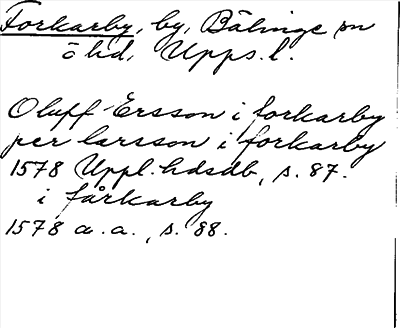 Forkarby, by, Bälinge sn
ö hd, Upps. l.
Oluff Ersson i forkarby
per larsson i forkarby
1578 Uppl. hdsdb, s. 87.
i fårkarby
1578 a. a., s. 88.